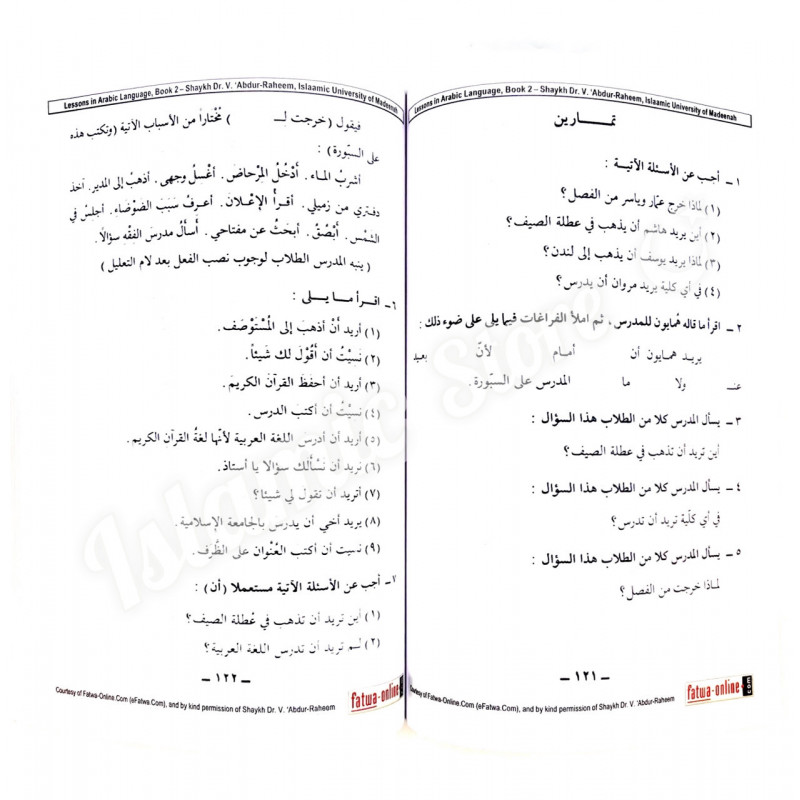 Lessons in Arabic Language, Book 2 – Shaykh Dr. V. 'Abdur-Raheem, Islaamic University of Madeenah
تمـــارين
١ – أجب عن الأسئلة الآتية :
(١) لماذا خرج عمّار وياسر من الفصل؟
(٢) أين يريد هاشم أن يذهب في عطلة الصيف؟
(٣) لماذا يريد يوسف أن يذهب إلى لندن؟
(٤) في أي كلية يريد مروان أن يدرس؟
٢ – اقرأ ما قاله هُمايون للمدرس، ثم املأ الفراغات فيما يلى على ضوء ذلك :
يريد همايون أن أمام لأنّ بعيد
عنـ ولا ما المدرس على السبّورة.
٣ – يسأل المدرس كلا من الطلاب هذا السؤال :
أين تريد أن تذهب في عطلة الصيف؟
٤ – يسأل المدرس كلا من الطلاب هذا السؤال :
في أي كلّية تريد أن تدرس؟
٥ – يسأل المدرس كلا من الطلاب هذا السؤال :
لماذا خرجت من الفصل؟
– ١٢١ –
fatwa-online.com
Courtesy of Fatwa-Online.Com (eFatwa.Com), and by kind permission of Shaykh Dr. V. 'Abdur-Raheem
Lessons in Arabic Language, Book 2 – Shaykh Dr. V. 'Abdur-Raheem, Islaamic University of Madeenah
فيقول (خرجت لـــ ) مُختاراً من الأسباب الآتية (وتكتب هذه
على السبّورة) :
أشربُ الماء. أدْخُلُ المرْحاضَ. أغسلُ وجهى. أذهبُ إلى المدير. آخذ
دفتري من زميلي. أقرأُ الإعْلانَ. أعرفُ سَبَبَ الضَّوضاء. أجلسُ في
الشمْس. أبْصُقُ. أبْحَثُ عن مفتاحي. أسألُ مدرسَ الفقْه سؤالاً.
(ينبه المدرس الطلاب لوجوب نصب الفعل بعد لام التعليل)
٦ – اقرأ ما يلى :
(١) أريد أنْ أذهبَ إلى المُسْتَوْصَف.
(٢) نَسيْتُ أن أَقُوْلَ لك شيئاً.
(٣) أريد أن أحفَظَ القرآن الكريمَ.
(٤) نسيْتُ أن أكتبَ الدرسَ.
(٥) أريد أن أدرسَ اللغة العربية لأنّها لغةُ القرآن الكريم.
(٦) نريد أن نَسْألك سؤالا يا أستاذ.
(٧) أتريد أن تقول لي شيئا؟
(٨) يريد أخي أن يدرسَ بالجامعة الإسلامية.
(٩) نسيت أن أكتب العُنْوان على الظّرف.
٧ – أجب عن الأسئلة الآتية مستعملا (أن) :
(١) أين تريد أن تذهب في عُطلة الصيف؟
(٢) لم تريد أن تدرس اللغة العربية؟
– ١٢٢ –
fatwa-online
Courtesy of Fatwa-Online.Com (eFatwa.Com), and by kind permission of Shaykh Dr. V. 'Abdur-Raheem
Islamic Store